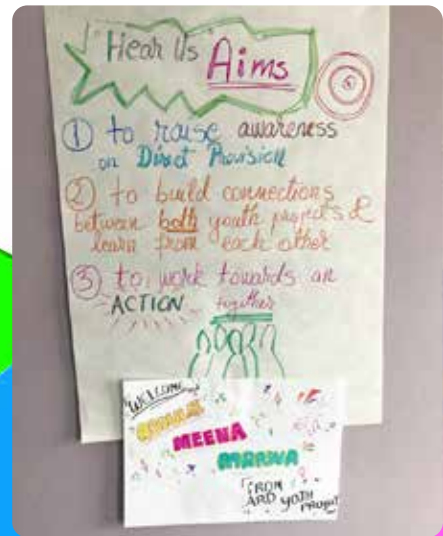 "Hear Us"
Aims
① to raise awareness
on Direct Provision
② to build connections
between both youth projects &
learn from each other
③ to work towards an
ACTION together
WELCOME
MEENA
FROM
ARD YOUTH
PROJECT